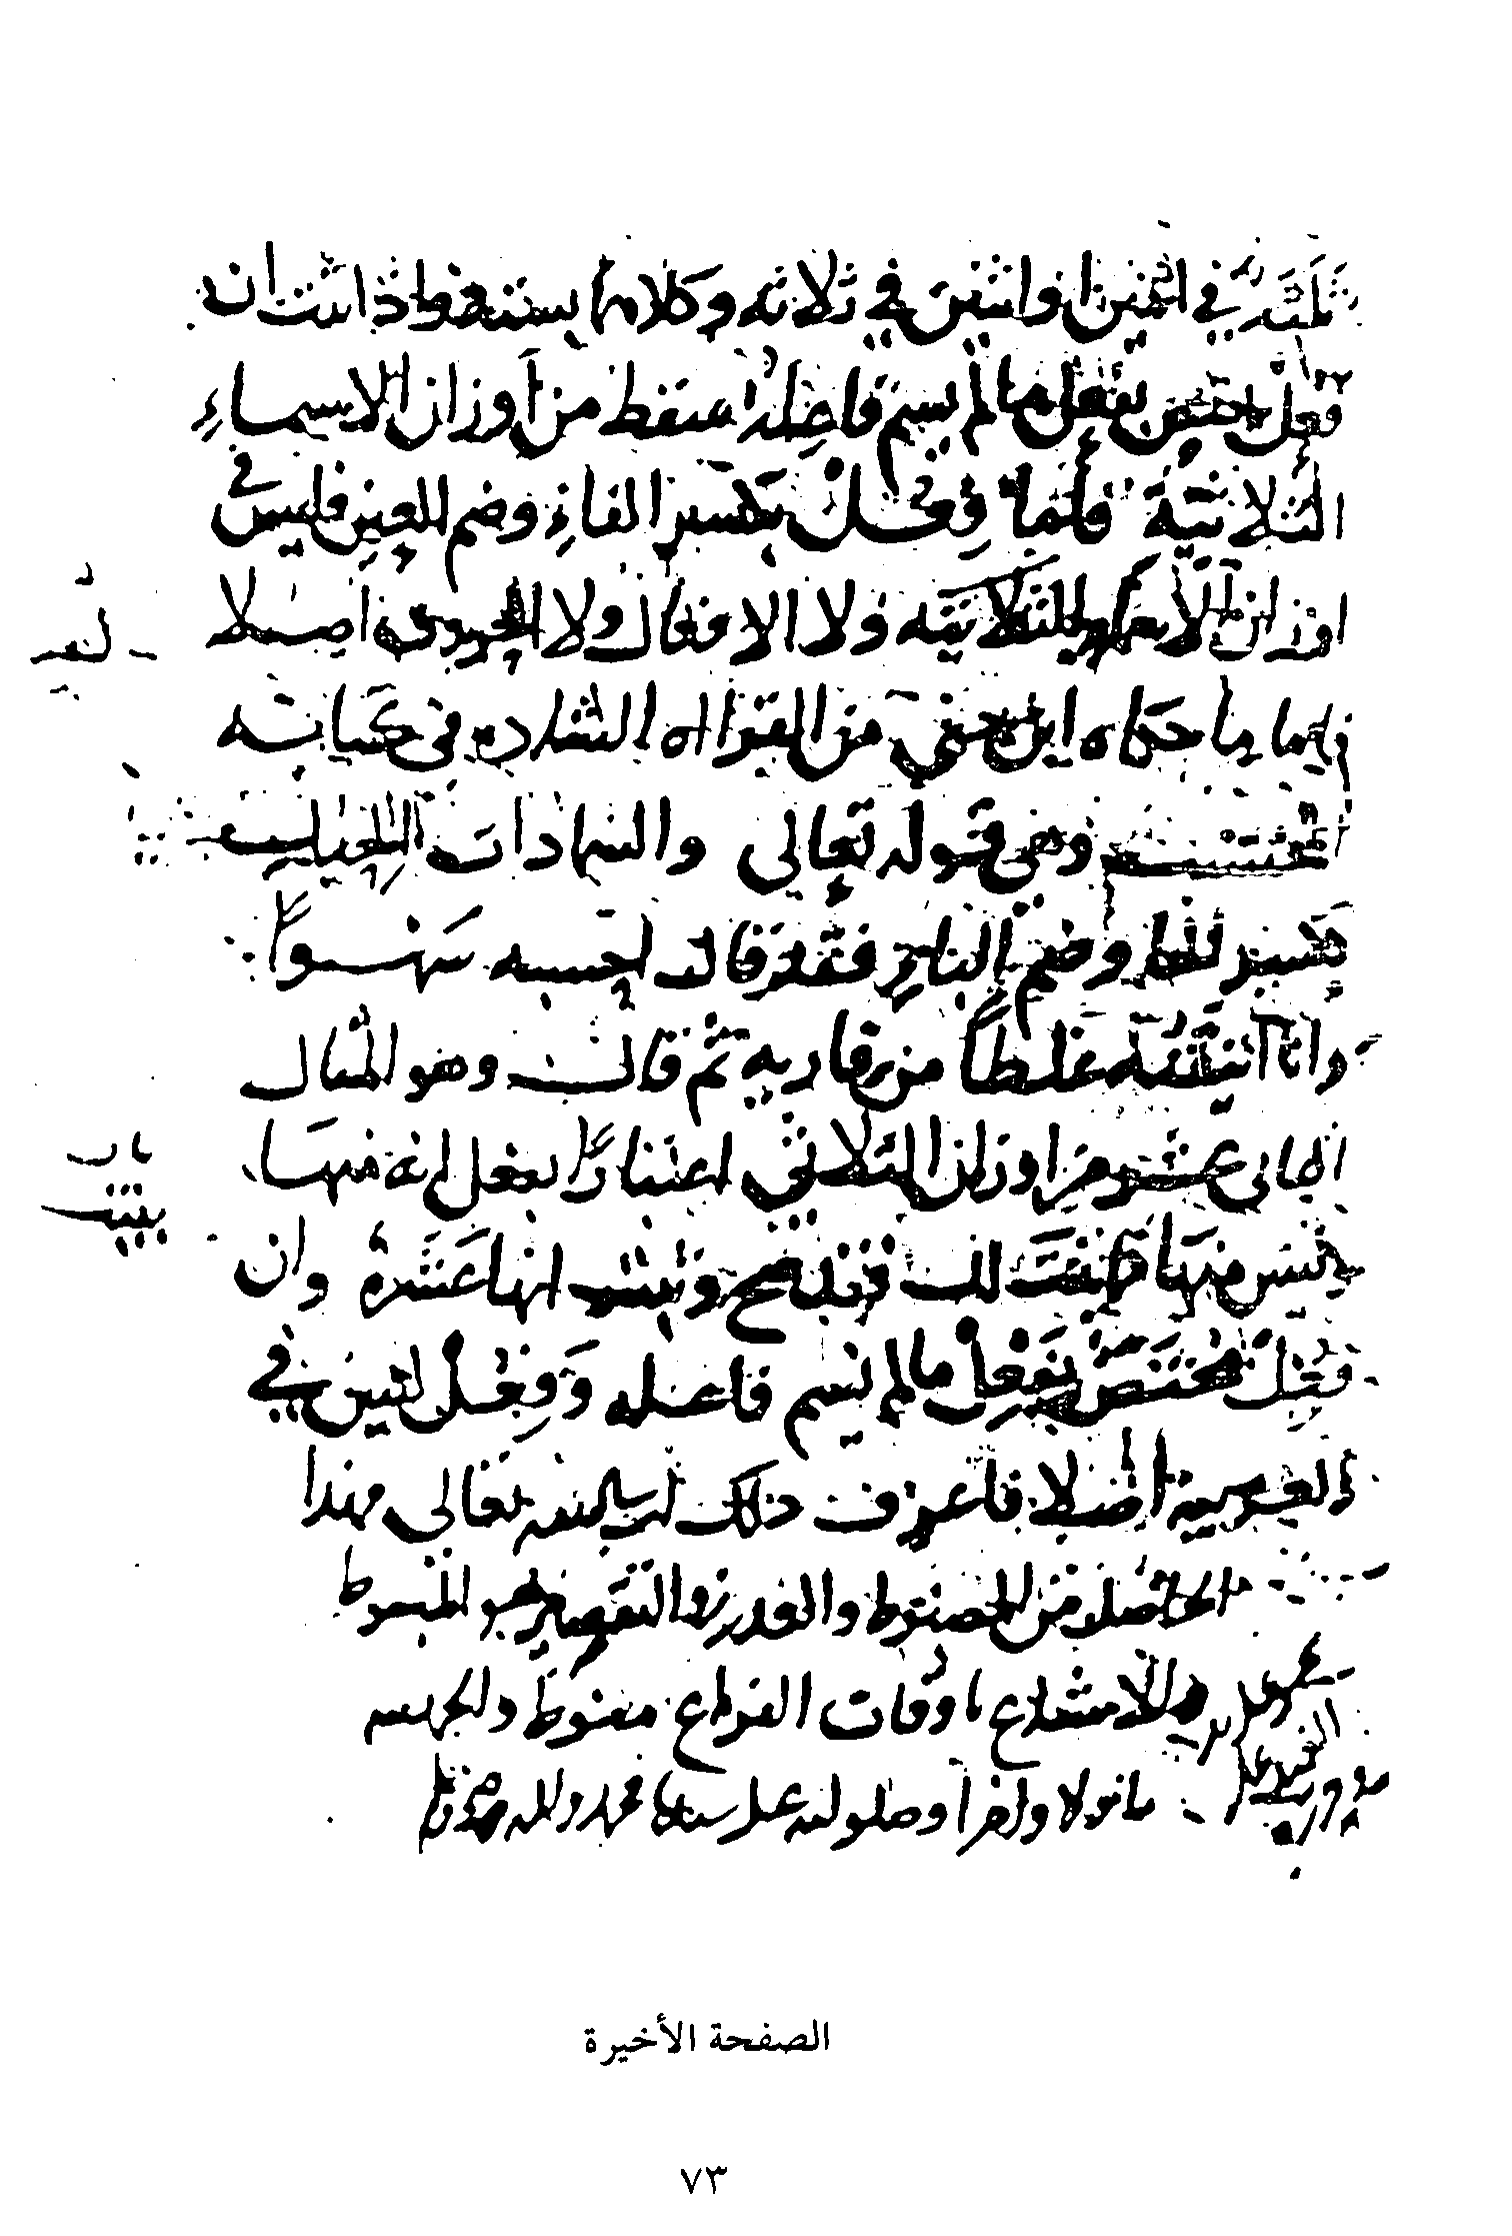 ثلثه في اثنين او اثنين في ثلاثه وكلاهما يستقط فاذا ثبت ان
فعل مختص بفعل ما لم يسم فاعله سقط من اوزان الاسماء
الثلاثية فأما فِعُل بكسر الفاء وضم العين فليس في
اوزان الاسماء الثلاثيه ولا الافعال ولا الحروف اصلا
واما ما حكاه ابن جني من القراءه الشاذه في كتابه
المحتسب وهي قوله تعالى والسماء ذات الحبك
بكسر الحا وضم الباء فقد قال احسبه سهوا
وانا اثبته غلطاً من قاريه ثم قال وهو المثال
الثاني عشر من اوزان الثلاثي اعتبارًا بفعل انه منها
وليس منها كما بينت لك فقد صح وثبت انها عَشَرة وان
فُعِلَ مختص بفعل ما لم يسم فاعله وَفِعُل ليس في
العربية اصلا فاعرف ذلك ان شا الله تعالى هذا
الحاصل من المضبوط والعذر في التقصير هو المبسوط
للامتناع باوقات الفراغ منوط والحمد لله
اولا واخرا وصلواته على سيدنا محمد واله وصحبه
باب
الصفحة الأخيرة
٧٣